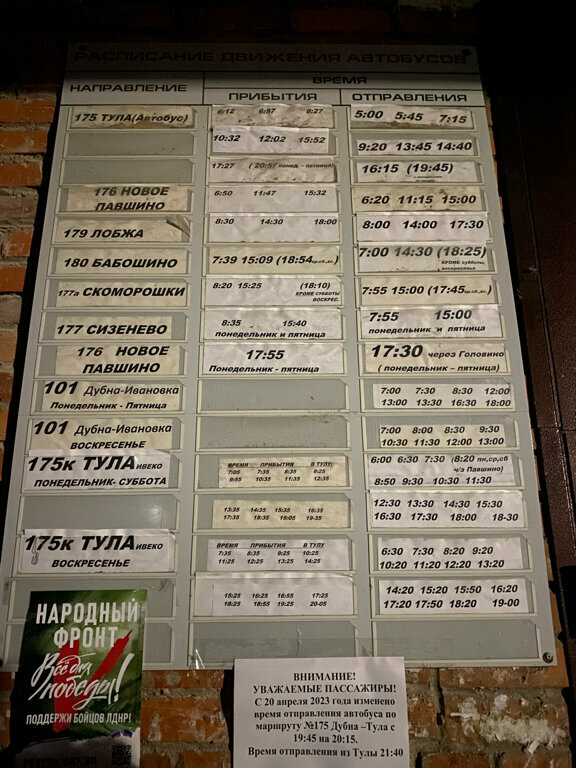 РАСПИСАНИЕ ДВИЖЕНИЯ АВТОБУСОВ
НАПРАВЛЕНИЕ
ВРЕМЯ
ПРИБЫТИЯ ОТПРАВЛЕНИЯ
175 ТУЛА(Автобус) 6:12 6:57 8:27 5:00 5:45 7:15
10:32 12:02 15:52 9:20 13:45 14:40
17:27 (20:57 понед. – пятница) 16:15 (19:45)
176 НОВОЕ ПАВШИНО 6:50 11:47 15:32 6:20 11:15 15:00
179 ЛОБЖА 8:30 14:30 18:00 8:00 14:00 17:30
180 БАБОШИНО 7:39 15:09 (18:54пр.сб.вс.) 7:00 14:30 (18:25)
КРОМЕ субботы, воскресенья
177а СКОМОРОШКИ 8:20 15:25 (18:10) 7:55 15:00 (17:45пр.сб.вс.)
КРОМЕ СУББОТЫ ВОСКРЕС.
177 СИЗЕНЕВО 8:35 15:40 7:55 15:00
понедельник и пятница понедельник и пятница
176 НОВОЕ ПАВШИНО 17:55 17:30 через Головино
Понедельник - пятница ( понедельник – пятница)
101 Дубна-Ивановка 7:00 7:30 8:30 12:00
Понедельник - Пятница 13:00 13:30 16:30 18:00
101 Дубна-Ивановка 7:00 8:00 8:30 9:30
ВОСКРЕСЕНЬЕ 10:30 11:30 12:00 13:00
175к ТУЛА ИВЕКО ВРЕМЯ ПРИБЫТИЯ В ТУЛУ: 6:00 6:30 7:30 (8:20 пн,ср,сб
ч/з Павшино)
ПОНЕДЕЛЬНИК- СУББОТА 7:05 7:35 8:35 9:25 8:50 9:30 10:30 11:30
9:55 10:35 11:35 12:35
13:35 14:35 15:35 16:35 12:30 13:30 14:30 15:30
17:35 18:35 19:05 19-35 16:30 17:30 18:00 18-30
175к ТУЛА ИВЕКО ВРЕМЯ ПРИБЫТИЯ В ТУЛУ 6:30 7:30 8:20 9:20
ВОСКРЕСЕНЬЕ 7:35 8:35 9:25 10:25 10:20 11:20 12:20 13:20
11:25 12:25 13:25 14:25
15:25 16:25 16:55 17:25 14:20 15:20 15:50 16:20
18:25 18:55 19:25 20-05 17:20 17:50 18:20 19-00
НАРОДНЫЙ
ФРОНТ
Всё для
победы!
ПОДДЕРЖИ БОЙЦОВ ЛДНР!
ВНИМАНИЕ!
УВАЖАЕМЫЕ ПАССАЖИРЫ!
С 20 апреля 2023 года изменено
время отправления автобуса по
маршруту №175 Дубна –Тула с
19:45 на 20:15.
Время отправления из Тулы 21:40